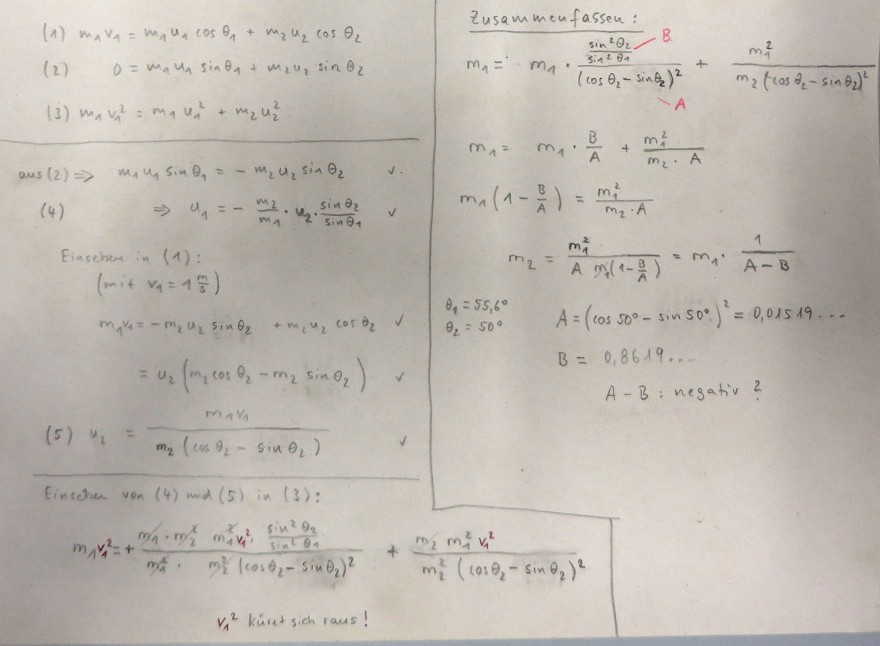 (1) m₁v₁ = m₁u₁ cos θ₁ + m₂u₂ cos θ₂
(2) 0 = m₁u₁ sin θ₁ + m₂u₂ sin θ₂
(3) m₁v₁² = m₁u₁² + m₂u₂²
aus (2) ⇒ m₁u₁ sin θ₁ = - m₂u₂ sin θ₂ ✓.
(4) ⇒ u₁ = - m₂/m₁ · u₂ · sin θ₂/sin θ₁ ✓
Einsetzen in (1):
(mit v₁ = 1 m/s)
m₁v₁ = - m₂u₂ sin θ₂ + m₂u₂ cos θ₂ ✓
= u₂ (m₂ cos θ₂ - m₂ sin θ₂) ✓
(5) u₂ = m₁v₁ / m₂ (cos θ₂ - sin θ₂) ✓
Einsetzen von (4) und (5) in (3):
m₁v₁² = + m₁ · m₂² m₁² v₁² · sin²θ₂/sin²θ₁ / m₁² · m₂² (cos θ₂ - sin θ₂)² + m₂ m₁² v₁² / m₂² (cos θ₂ - sin θ₂)²
v₁² kürzt sich raus!
Zusammenfassen:
m₁ = m₁ · sin²θ₂/sin²θ₁ / (cos θ₂ - sin θ₂)² + m₁² / m₂ (cos θ₂ - sin θ₂)²
B
A
m₁ = m₁ · B/A + m₁²/m₂ · A
m₁ (1 - B/A) = m₁²/m₂ · A
m₂ = m₁² / A m₁(1 - B/A) = m₁ · 1/A - B
θ₁ = 55,6°
θ₂ = 50°
A = (cos 50° - sin 50°)² = 0,01519...
B = 0,8619...
A - B : negativ ?